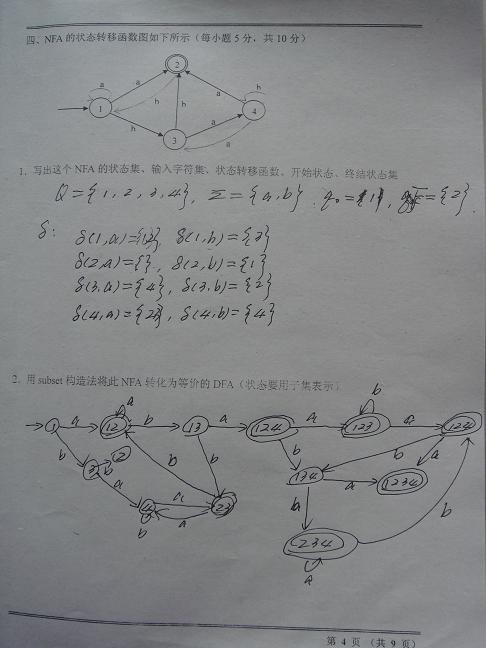 四、NFA 的状态转移函数图如下所示（每小题 5 分，共 10 分）
a
2
h
a
b
a
h
a
1
h
h
4
3
a
a
1. 写出这个 NFA 的状态集、输入字符集、状态转移函数、开始状态、终结状态集
Q={1,2,3,4}, Σ={a,b}. q₀= 1, F={2}.
δ:
δ(1,a)={12}, δ(1,b)={3}
δ(2,a)={}, δ(2,b)={1}
δ(3,a)={4}, δ(3,b)={2}
δ(4,a)={23}, δ(4,b)={4}
2. 用 subset 构造法将此 NFA 转化为等价的 DFA（状态要用子集表示）
1 a 12 a b 13 a 124 a 123 b a 124
b 3 b 2 a 4 b a a 23 b b
b 134 a 1234 a b
b 234 a b
第 4 页 （共 9 页）